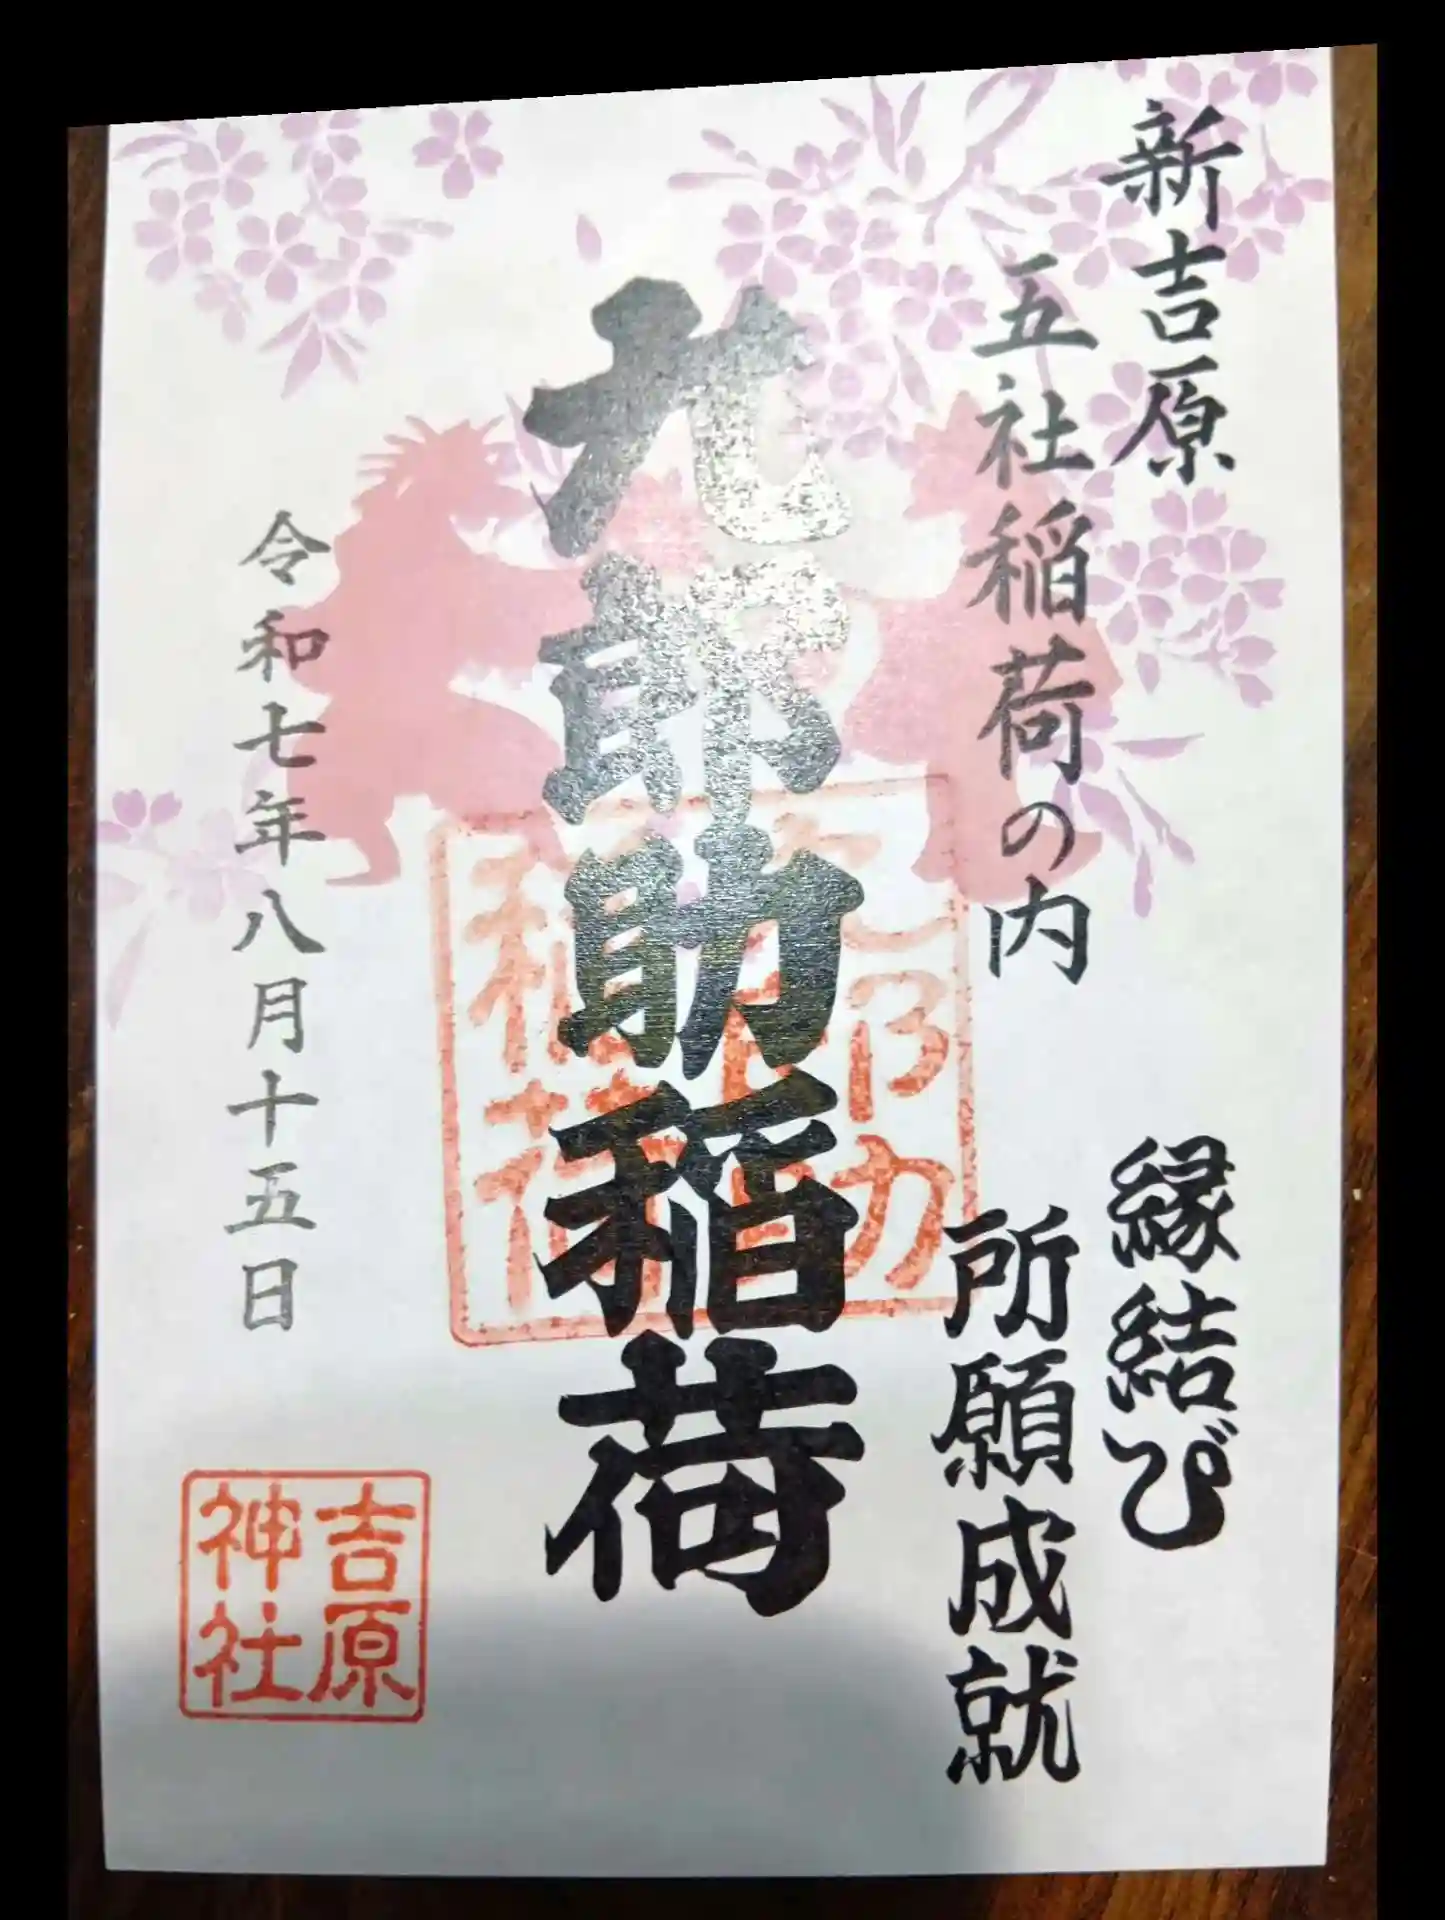 新吉原
縁結び
五社稲荷の内
所願成就
九郎助稲荷
令和七年八月十五日
吉原
神社
稲荷